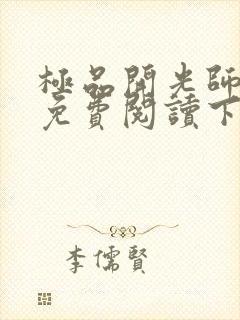 極品開光師
免費閱讀下
李儒賢